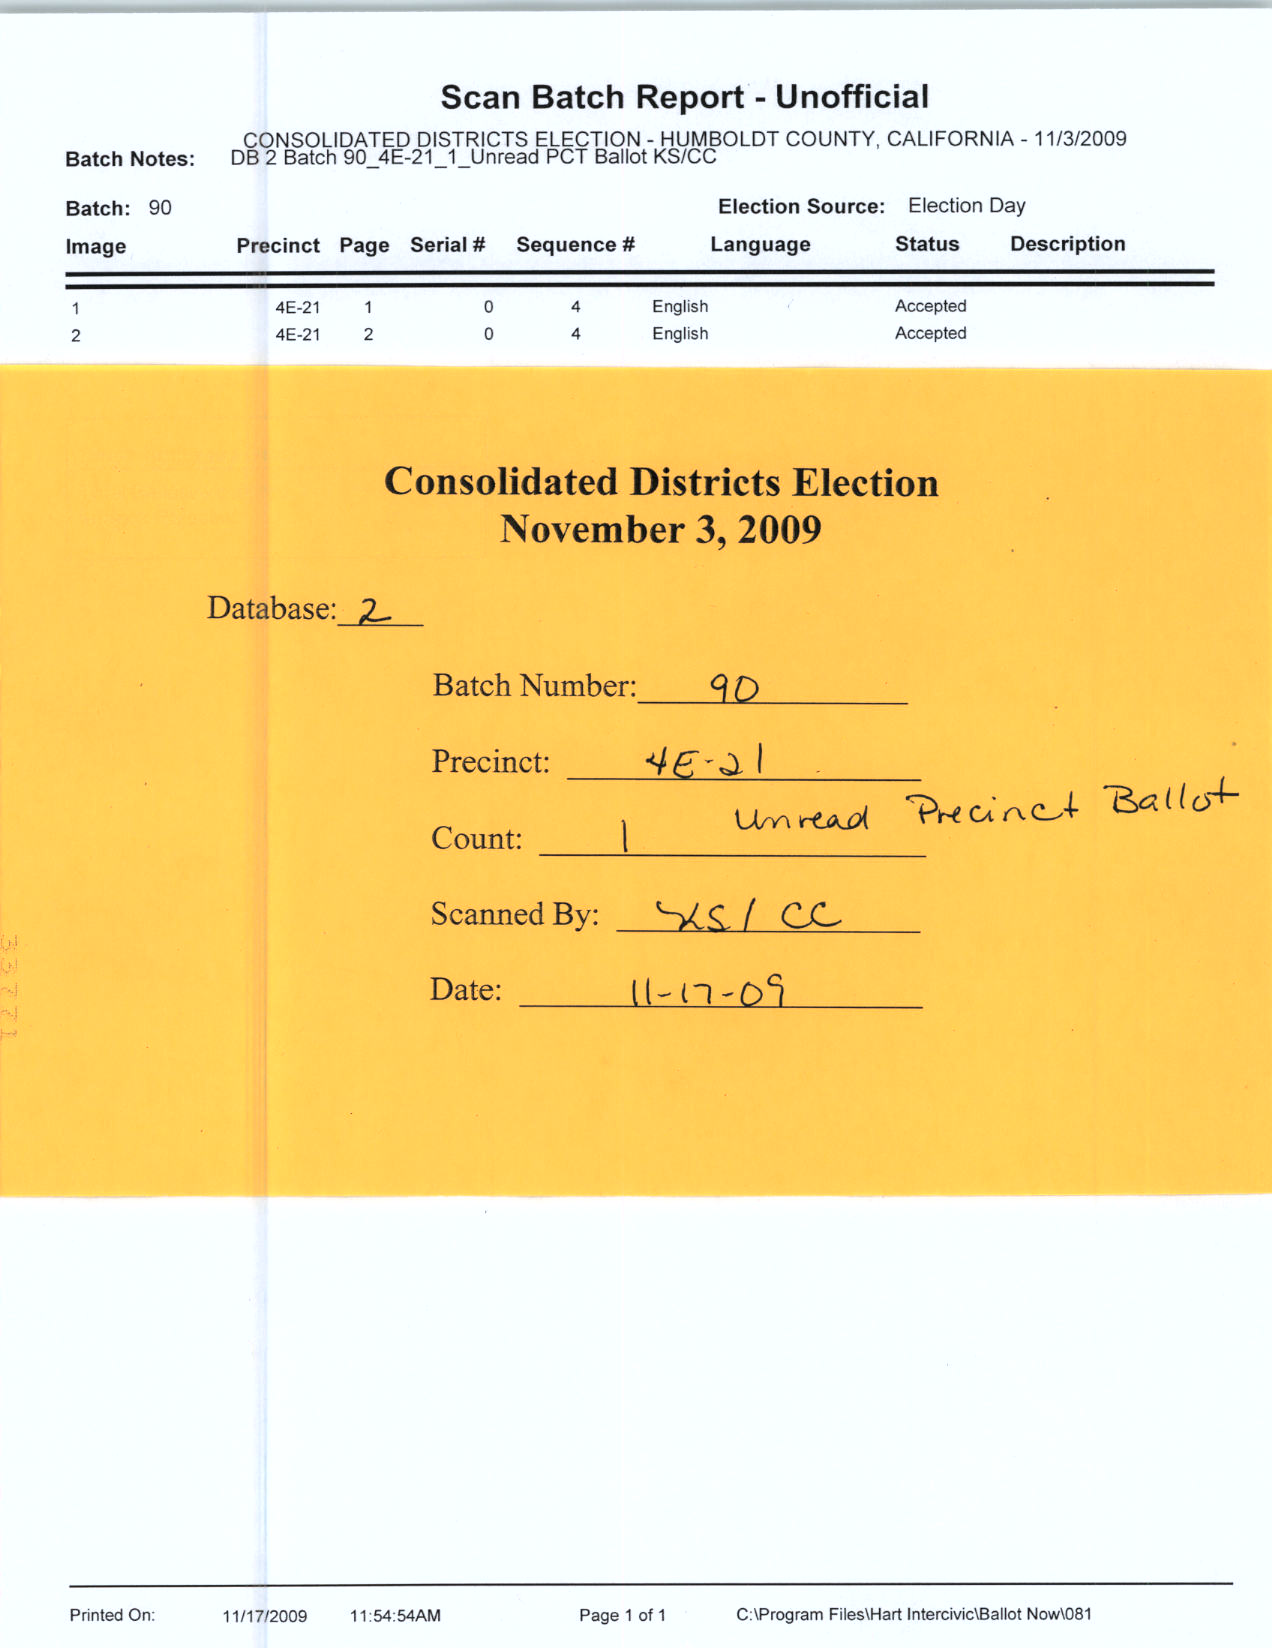 Scan Batch Report - Unofficial
CONSOLIDATED DISTRICTS ELECTION - HUMBOLDT COUNTY, CALIFORNIA - 11/3/2009
Batch Notes: DB 2 Batch 90_4E-21_1_Unread PCT Ballot KS/CC
Batch: 90 Election Source: Election Day
Image Precinct Page Serial # Sequence # Language Status Description
1 4E-21 1 0 4 English Accepted
2 4E-21 2 0 4 English Accepted
Consolidated Districts Election
November 3, 2009
Database: 2
Batch Number: 90
Precinct: 4E-21
Count: 1 Unread Precinct Ballot
Scanned By: KS/CC
Date: 11-17-09
33771
Printed On: 11/17/2009 11:54:54AM Page 1 of 1 C:\Program Files\Hart Intercivic\Ballot Now\081